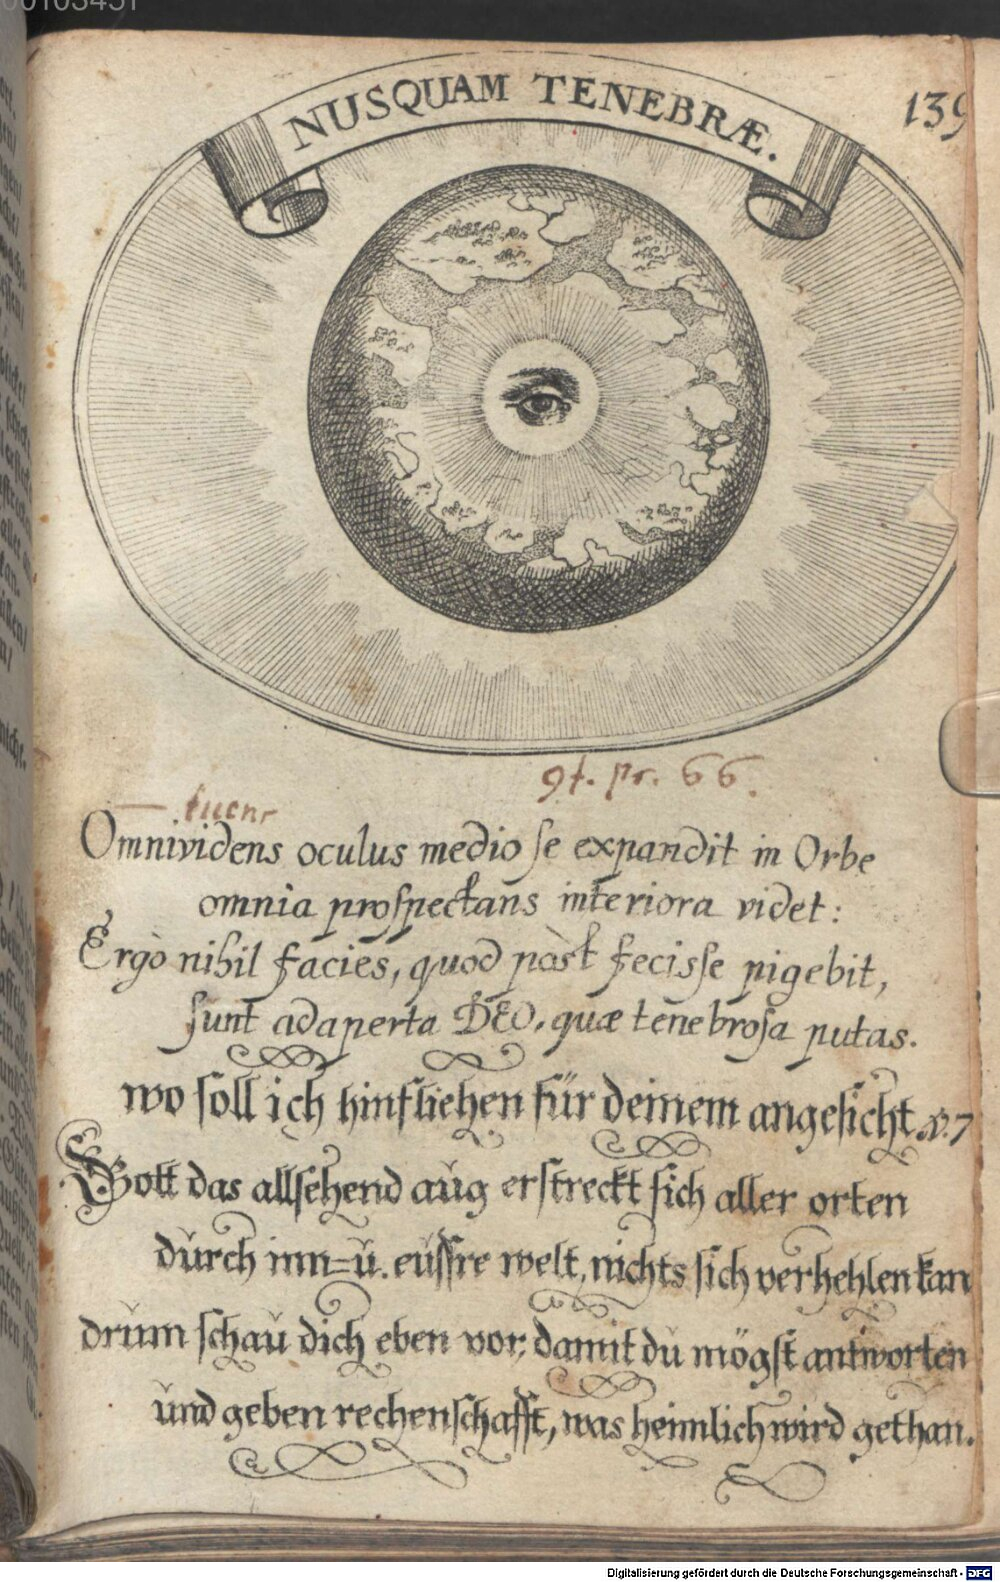 00103451
NUSQUAM TENEBRÆ.
139
9t. pr. 66.
tuens
Omnividens oculus medio se expandit in Orbe
omnia prospectans interiora videt:
Ergò nihil facies, quod pòst fecisse pigebit,
sunt adaperta DEO, quæ tenebrosa putas.
wo soll ich hinfliehen für deinem angesicht. v. 7
Gott das allsehend aug erstreckt sich aller orten
durch inn= u. eussre welt, nichts sich verhehlen kan
drum schau dich eben vor, damit du mögst antworten
und geben rechenschafft, was heimlich wird gethan.
Digitalisierung gefördert durch die Deutsche Forschungsgemeinschaft - DFG